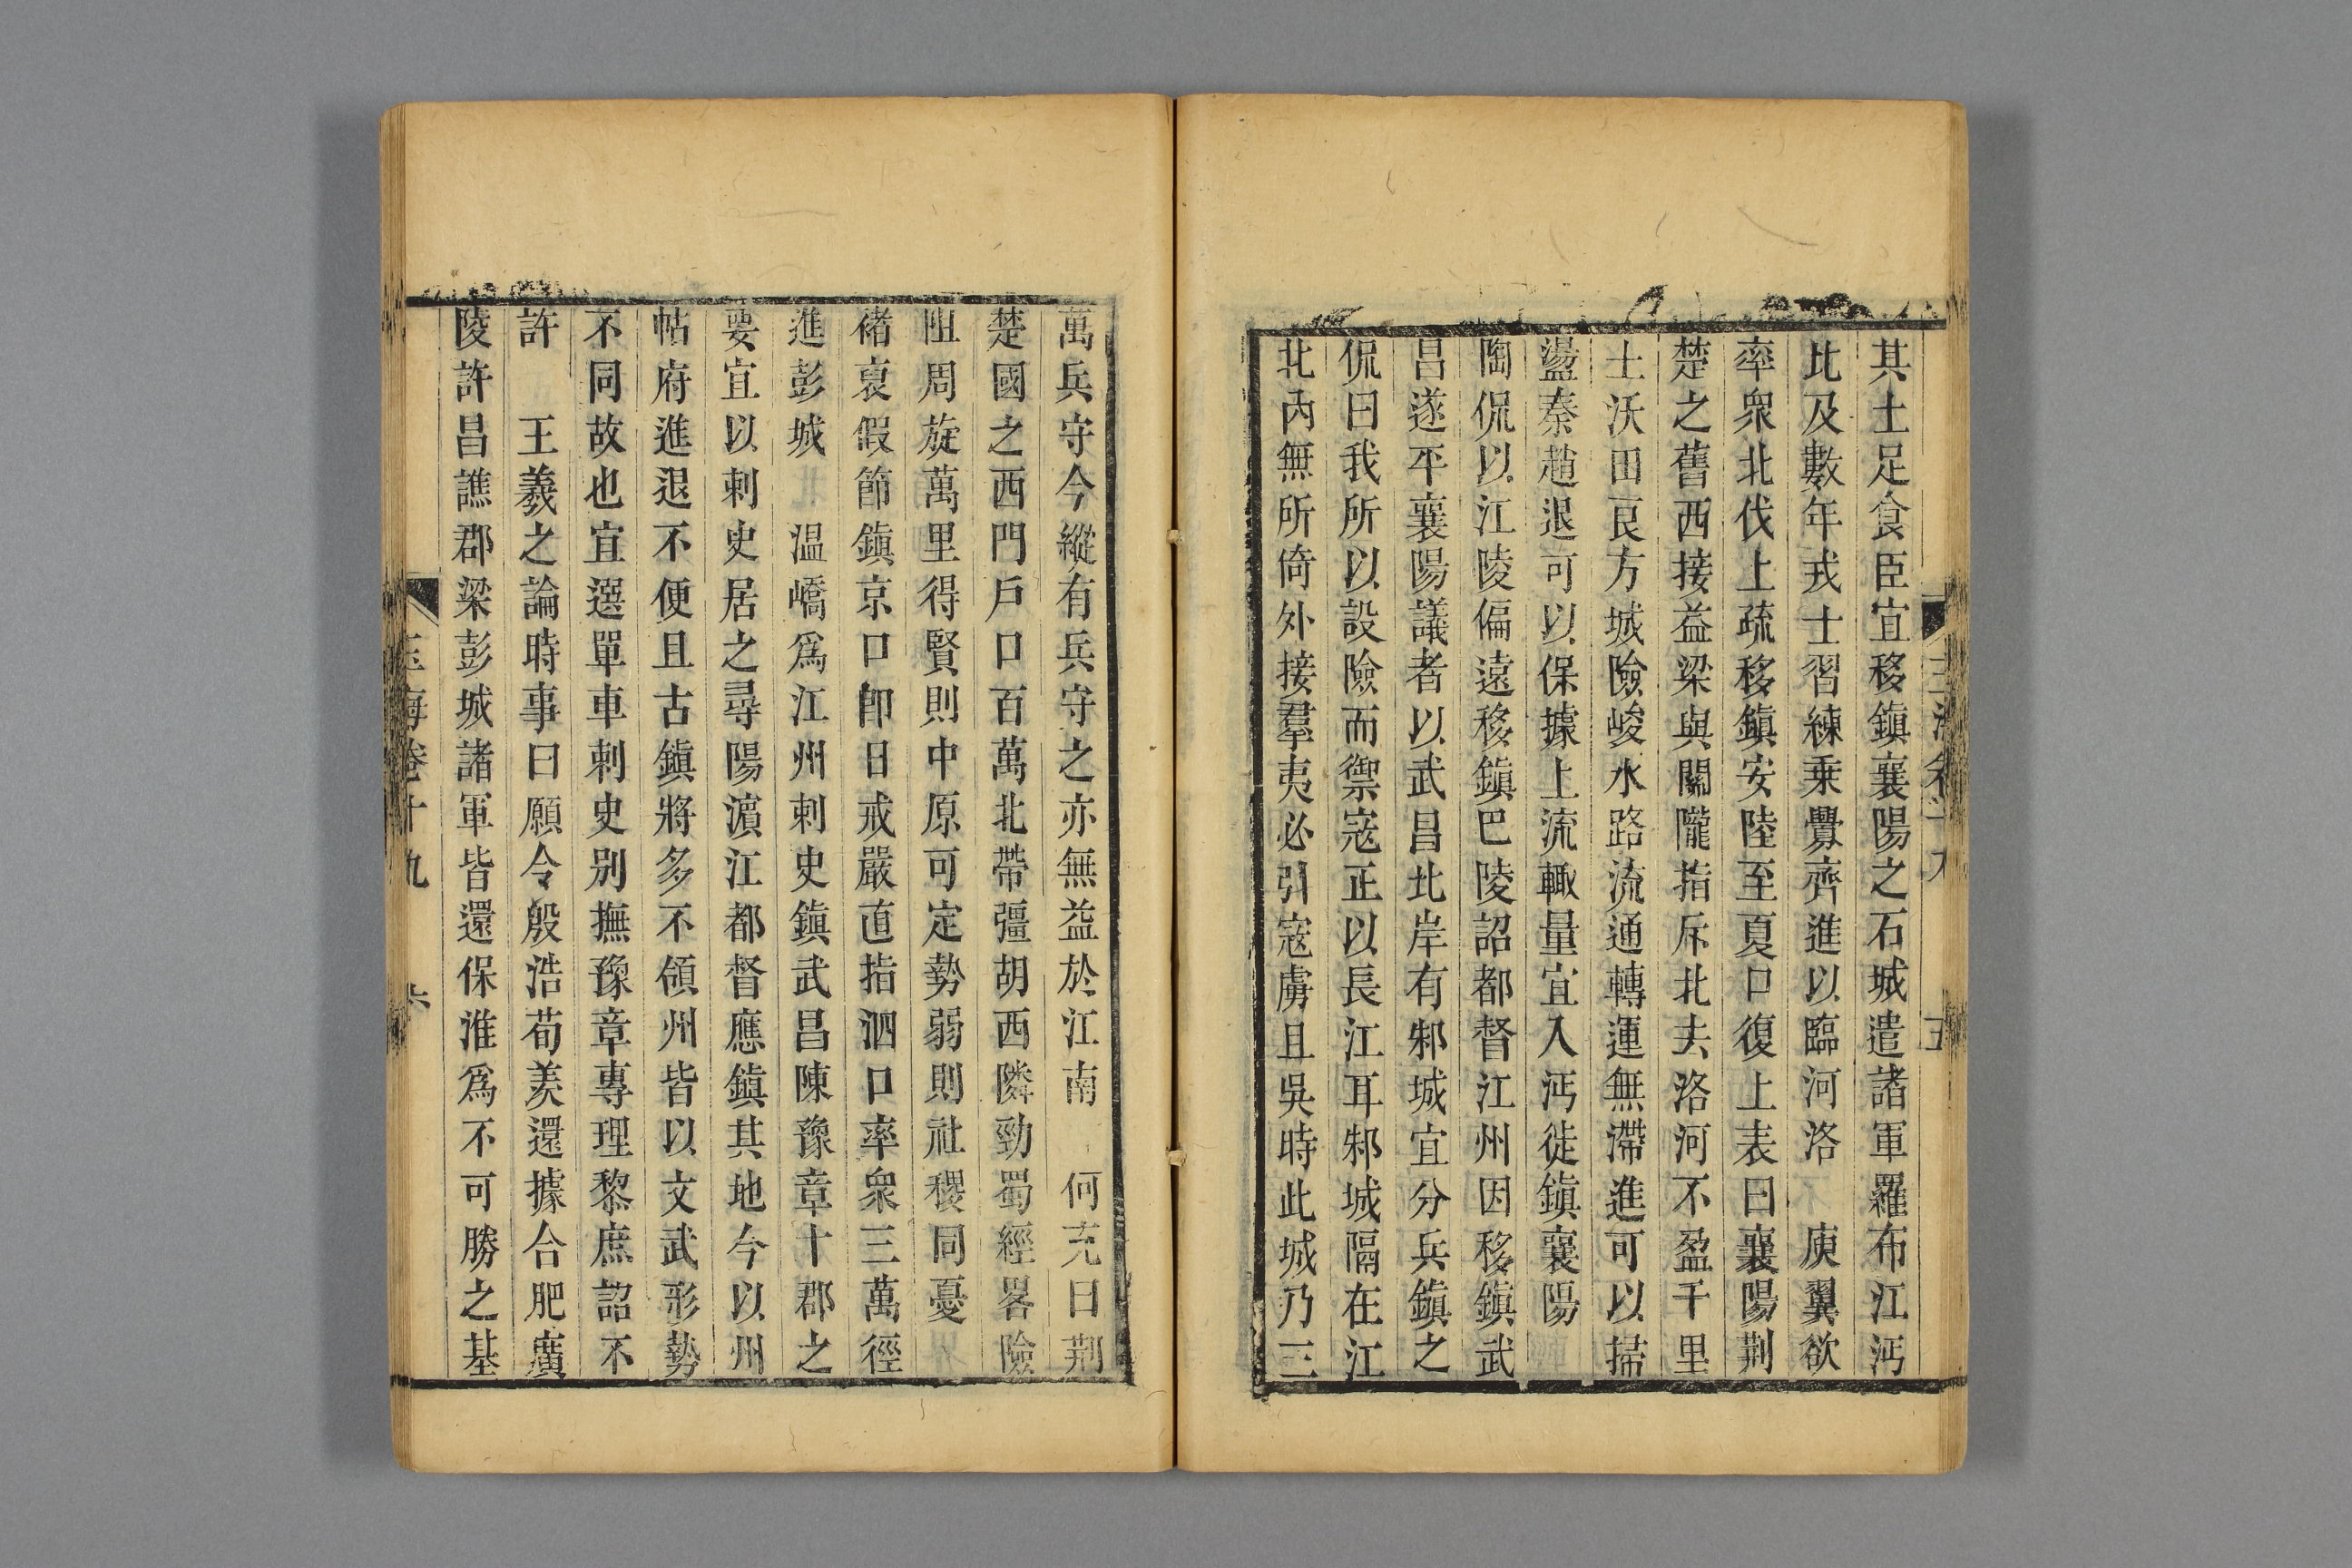 其土足食臣宜移鎮襄陽之石城遣諸軍羅布江沔
比及數年戎士習練乗釁齊進以臨河洛　庾翼欲
率衆北伐上疏移鎮安陸至夏口復上表曰襄陽荆
楚之舊西接益梁與關隴指斥北去洛河不盈千里
土沃田良方城險峻水路流通轉運無滯進可以掃
盪秦趙退可以保據上流輙量宜入沔徙鎮襄陽
陶侃以江陵偏遠移鎮巴陵詔都督江州因移鎮武
昌遂平襄陽議者以武昌北岸有邾城宜分兵鎮之
侃曰我所以設險而禦寇正以長江耳邾城隔在江
北內無所倚外接羣夷必引寇虜且吳時此城乃三
萬兵守今縱有兵守之亦無益於江南　何充曰荆
楚國之西門戶口百萬北帶彊胡西隣勁蜀經畧險
阻周旋萬里得賢則中原可定勢弱則社稷同憂
褚裒假節鎮京口卽日戒嚴直指泗口率衆三萬徑
進彭城　溫嶠爲江州刺史鎮武昌陳豫章十郡之
要宜以刺史居之尋陽濵江都督應鎮其地今以州
帖府進退不便且古鎮將多不領州皆以文武形勢
不同故也宜選單車刺史别撫豫章專理黎庶詔不
許　王羲之論時事曰願令殷浩荀羨還據合肥廣
陵許昌譙郡梁彭城諸軍皆還保淮爲不可勝之基
玉海卷十九　六